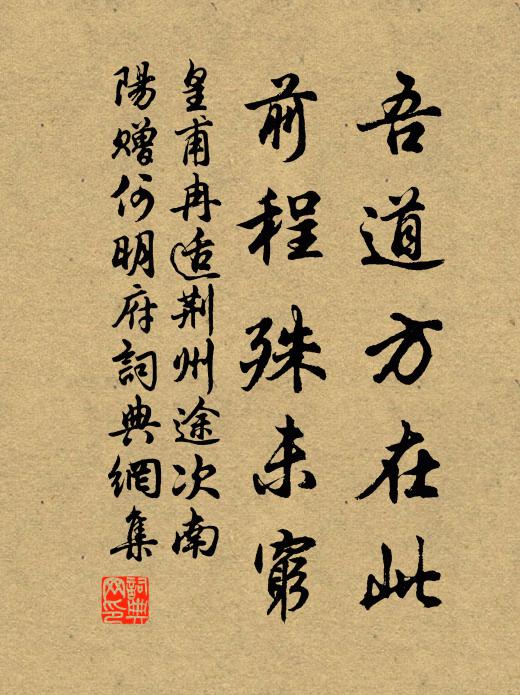 吾道方在此
前程殊未窮
皇甫冉適荆州途次南
陽贈何明府詞典網集
詞典网印